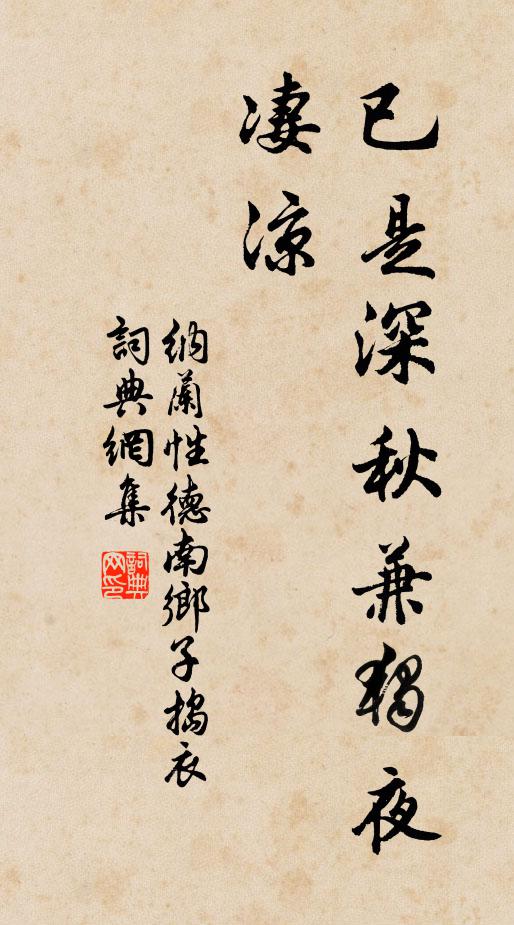 已是深秋兼獨夜
凄涼
納蘭性德南鄉子搗衣
詞典網集
詞典
网印